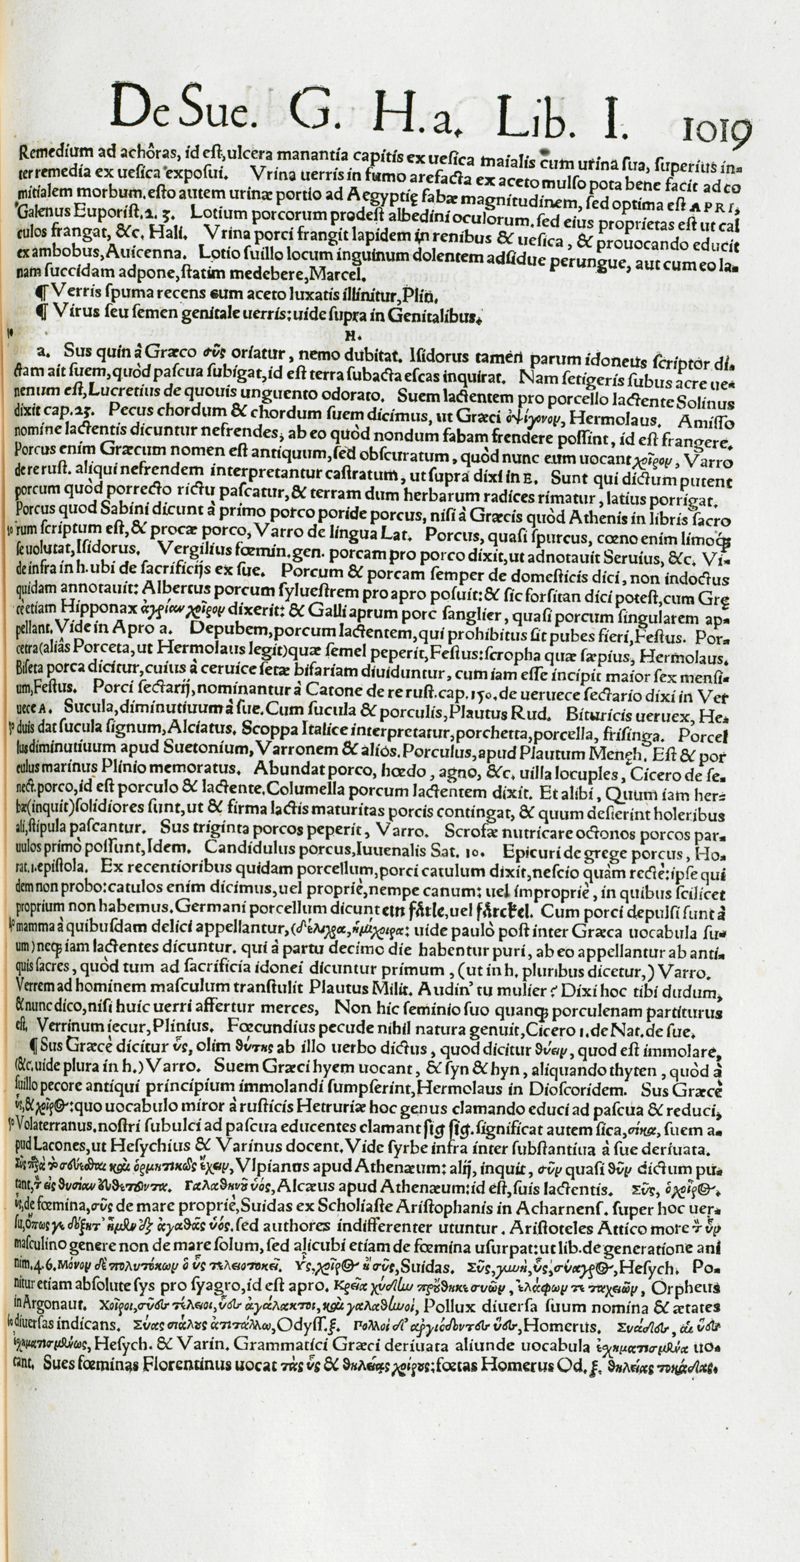 De Sue. G. H.a. Lib. I. 1019
Remedium ad achôras, id eſt, ulcera manantia capitis ex ueſica maialis cum urina ſua, ſuperius in-
ter remedia ex ueſica expoſui. Vrina uerris in fumo arefacta ex aceto mulſo pota bene facit ad co
mitialem morbum. eſto autem urinæ portio ad Aegyptię fabæ magnitudinem, ſed optima eſt APRI,
Galenus Euporiſt. 2. 3. Lotium porcorum prodeſt albedini oculorum. ſed eius proprietas eſt ut cal
culos frangat, &c. Hali. Vrina porci frangit lapidem in renibus & ueſica, & prouocando educit
ex ambobus, Auicenna. Lotio ſuillo locum inguinum dolentem adſidue perungue, aut cum eo la-
nam ſuccidam adpone, ſtatim medebere, Marcel.
¶ Verris ſpuma recens cum aceto luxatis illinitur, Plin.
¶ Virus ſeu ſemen genitale uerris: uide ſupra in Genitalibus.
10 H.
a. Sus quin à Græco σῦς oriatur, nemo dubitat. Iſidorus tamen parum idoneus ſcriptor di-
ctam ait ſuem, quòd paſcua ſubigat, id eſt terra ſubacta eſcas inquirat. Nam ſetigeris ſubus acre ue-
nenum eſt, Lucretius de quouis unguento odorato. Suem lactentem pro porcello lactente Solinus
dixit cap. 25. Pecus chordum & chordum ſuem dicimus, ut Græci ὀψίγονον, Hermolaus. Amiſſo
nomine lactentis dicuntur nefrendes, ab eo quòd nondum fabam frendere poſſint, id eſt frangere.
Porcus enim Græcum nomen eſt antiquum, ſed obſcuratum, quòd nunc eum uocant χοῖρον, Varro
de re ruſt. aliqui nefrendem interpretantur caſtratum, ut ſupra dixi in E. Sunt qui dictum putent
porcum quòd porrecto rictu paſcatur, & terram dum herbarum radices rimatur, latius porrigat.
Porcus quod Sabini dicunt à primo porco poride porcus, niſi à Græcis quòd Athenis in libris ſacro
20 rum ſcriptum eſt, & procæ porco, Varro de lingua Lat. Porcus, quaſi ſpurcus, cœno enim limoq́;
ſe uolutat, Iſidorus. Vergilius fœmin. gen. porcam pro porco dixit, ut adnotauit Seruius, &c. Vi-
de infra in h. ubi de ſacrificijs ex ſue. Porcum & porcam ſemper de domeſticis dici, non indoctus
quidam annotauit: Albertus porcum ſylueſtrem pro apro poſuit: & ſic forſitan dici poteſt, cum Gre
ce etiam Hipponax ἀγρίων χοῖρον dixerit: & Galli aprum porc ſanglier, quaſi porcum ſingularem ap-
pellant. Vide in Apro a. Depubem, porcum lactentem, qui prohibitus ſit pubes fieri, Feſtus. Por-
cetra (aliàs Porceta, ut Hermolaus legit) quæ ſemel peperit, Feſtus: ſcropha quæ ſæpius, Hermolaus.
Biſeta porca dicitur, cuius à ceruice ſetæ bifariam diuiduntur, cum iam eſſe incipit maior ſex menſi-
um, Feſtus. Porci ſectarij, nominantur à Catone de re ruſt. cap. 150. de ueruece ſectario dixi in Ver
uece A. Sucula, diminutiuum à ſue. Cum ſucula & porculis, Plautus Rud. Bituricis ueruex, He-
30 duis dat ſucula ſignum, Alciatus. Scoppa Italice interpretatur, porchetta, porcella, friſinga. Porcel
lus diminutiuum apud Suetonium, Varronem & alios. Porculus, apud Plautum Meneh. Eſt & por
culus marinus Plinio memoratus. Abundat porco, hœdo, agno, &c. uilla locuples, Cicero de ſe-
nect. porco, id eſt porculo & lactente. Columella porcum lactentem dixit. Et alibi, Quum iam her-
bæ (inquit) ſolidiores ſunt, ut & firma lactis maturitas porcis contingat, & quum deſierint holeribus
ali, ſtipula paſcantur. Sus triginta porcos peperit, Varro. Scrofæ nutricare octonos porcos par-
uulos primò poſſunt, Idem. Candidulus porcus, Iuuenalis Sat. 10. Epicuri de grege porcus, Ho-
rat. 1. epiſtola. Ex recentioribus quidam porcellum, porci catulum dixit, neſcio quàm rectè: ipſe qui
dem non probo: catulos enim dicimus, uel propriè, nempe canum: uel impropriè, in quibus ſcilicet
proprium non habemus. Germani porcellum dicunt ein fårle, uel fårckel. Cum porci depulſi ſunt à
40 mamma à quibuſdam delici appellantur, (δέλφαξ, ἡμίχοιροι: uide paulò poſt inter Græca uocabula ſu-
um) neq́; iam lactentes dicuntur. qui à partu decimo die habentur puri, ab eo appellantur ab anti-
quis ſacres, quòd tum ad ſacrificia idonei dicuntur primum, (ut in h. pluribus dicetur,) Varro.
Verrem ad hominem maſculum tranſtulit Plautus Milit. Audin' tu mulier? Dixi hoc tibi dudum,
& nunc dico, niſi huic uerri affertur merces, Non hic ſeminio ſuo quanq́; porculenam partiturus
eſt. Verrinum iecur, Plinius. Fœcundius pecude nihil natura genuit, Cicero 1. de Nat. de ſue.
¶ Sus Græcè dicitur ὗς, olim θύτης ab illo uerbo dictus, quod dicitur θύειν, quod eſt immolare,
(&c. uide plura in h.) Varro. Suem Græci hyem uocant, & ſyn & hyn, aliquando thyten, quòd à
ſuillo pecore antiqui principium immolandi ſumpſerint, Hermolaus in Dioſcoridem. Sus Græcè
ὗς, & χοῖρος: quo uocabulo miror à ruſticis Hetruriæ hoc genus clamando educi ad paſcua & reduci,
50 Volaterranus. noſtri ſubulci ad paſcua educentes clamant ſig ſig. ſignificat autem ſica, σίκα, ſuem a-
pud Lacones, ut Heſychius & Varinus docent. Vide ſyrbe infra inter ſubſtantiua à ſue deriuata.
Σῦς παρὰ τὸ σεύεσθαι καὶ ὁρμητικῶς ἔχειν, Vlpianus apud Athenæum: alij, inquit, σῦν quaſi θῦν dictum pu-
tant, τὸν εἰς θυσίαν εὐθετοῦντα. Γαλαθηνοῦ ὑός, Alcæus apud Athenæum: id eſt, ſuis lactentis. Σῦς, ὁ χοῖρος.
ὗς, de fœmina, σῦς de mare propriè, Suidas ex Scholiaſte Ariſtophanis in Acharnenſ. ſuper hoc uer-
ſu, ὅπως γε δόξητ' ἦμεν ἐξ ἀγαθᾶς ὑός. ſed authores indifferenter utuntur. Ariſtoteles Attico more τὸν ὗν
maſculino genere non de mare ſolum, ſed alicubi etiam de fœmina uſurpat: ut lib. de generatione ani
nim. 4. 6. Μόνον δὲ πολυτόκων ὁ ὗς τελειοτοκεῖ. Ὗς, χοῖρος ἢ σῦς, Suidas. Σῦς, γυνὴ, ὗς, σύαγρος, Heſych. Po-
nitur etiam abſolute ſys pro ſyagro, id eſt apro. Κρεῖα χύδην προὔθηκε συῶν, ἐλάφων τε ταχειῶν, Orpheus
in Argonaut. Χοῖροι, σύες τέλειοι, ὕες ἀγάλακτοι, καὶ γαλαθηνοί, Pollux diuerſa ſuum nomina & ætates
60 diuerſas indicans. Σύας σιάλους ἀτιτάλλω, Odyſſ. ξ. Πολλοὶ δ' ἀργιόδοντες ὕες, Homerus. Συάδες, αἱ ὕες
ἐσχηματισμένως, Heſych. & Varin. Grammatici Græci deriuata aliunde uocabula ἐσχηματισμένα uo-
cant. Sues fœminas Florentinus uocat τὰς ὗς & θηλείας χοίρους: fœtas Homerus Od. ξ. θηλείας τοκάδας.